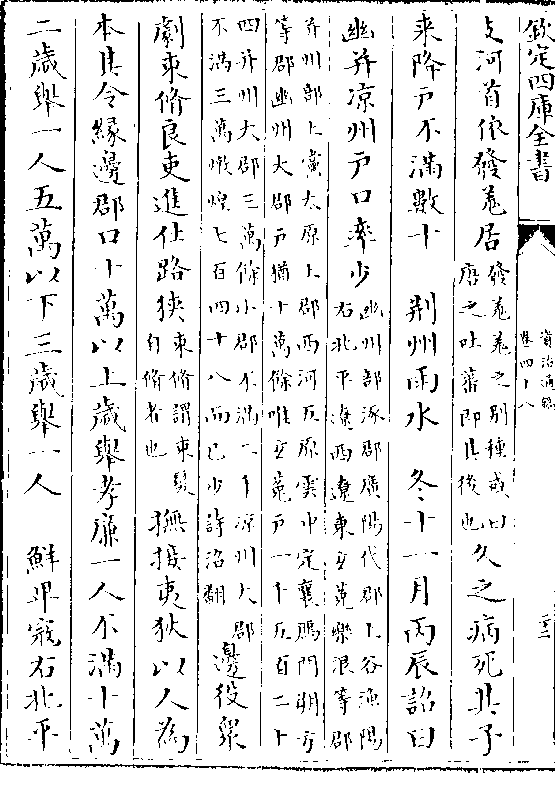 欽定四庫全書
資治通鑑
卷四十八
二十二
支河首依發羌居
發羌羌之别種或曰
唐之吐蕃即其後也
久之病死其子
來降戸不滿數十　荆州雨水　冬十一月丙辰詔曰
幽并凉州戸口率少
幽州部涿郡廣陽代郡上谷漁陽
右北平遼西遼東玄菟樂浪等郡
并州部上黨太原上郡西河五原雲中定襄鴈門朔方
等郡幽州大郡戸猶十萬餘唯玄菟戸一千五百二十
四并州大郡三萬餘小郡不滿二千凉州大郡
不滿三萬燉煌七百四十八而已少詩沼翻
邊役衆
劇束脩良吏進仕路狹
束脩謂束髮
自脩者也
撫接夷狄以人為
本其令緣邊郡口十萬以上歲舉孝廉一人不滿十萬
二歲舉一人五萬以下三歲舉一人　鮮卑寇右北平